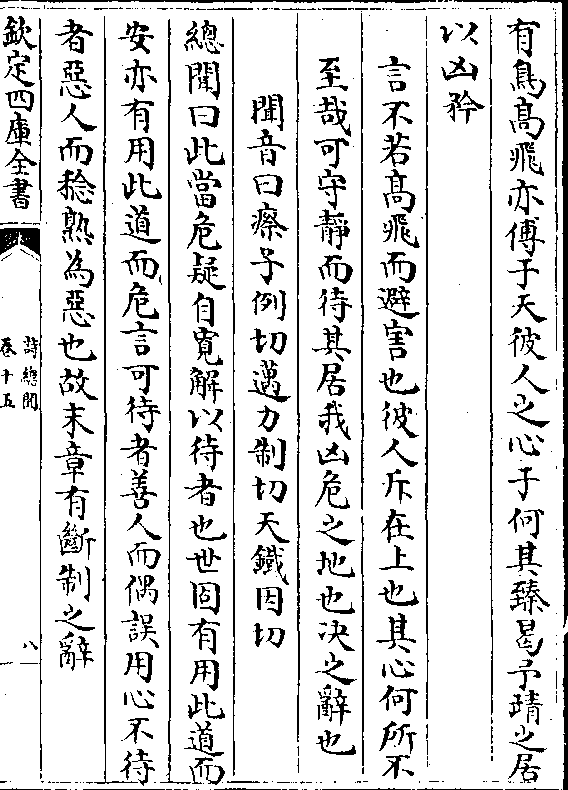 有鳥髙飛亦傅于天彼人之心于何其臻曷予靖之居
以凶矜
言不若髙飛而避害也彼人斥在上也其心何所不
至哉可守靜而待其居我凶危之地也决之辭也
聞音曰瘵子例切邁力制切天鐵因切
總聞曰此當危疑自寛解以待者也世固有用此道而
安亦有用此道而危言可待者善人而偶誤用心不待
者惡人而稔熟為惡也故末章有斷制之辭
欽定四庫全書
詩總聞
卷十五
八